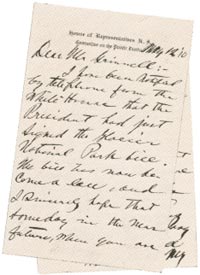 House of Representatives U. S.
Committee on the Public Lands
May 12, 10
Dear Mr Grinnell:-
I have been notified
by telephone from the
White House that the
President had just
signed the Glacier
National Park bill.
The bill has now be-
come a law, and
I sincerely hope that
someday in the near
future, when you are